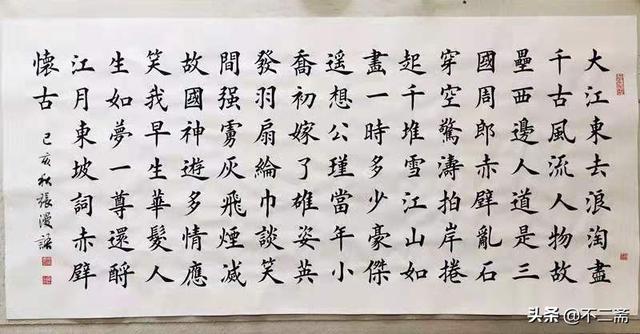 大江東去浪淘盡
千古風流人物故
壘西邊人道是三
國周郎赤壁亂石
穿空驚濤拍岸捲
起千堆雪江山如
畫一時多少豪傑
遥想公瑾當年小
喬初嫁了雄姿英
發羽扇綸巾談笑
間强虜灰飛煙滅
故國神遊多情應
笑我早生華髮人
生如夢一尊還酹
江月東坡詞赤壁
懷古
己亥秋張漫
头条 @不二斋